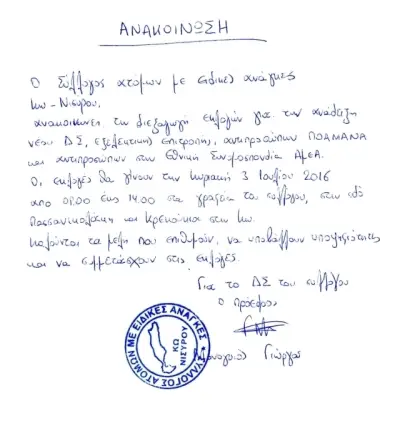 ΑΝΑΚΟΙΝΩΣΗ
Ο Σύλλογος ατόμων με ειδικές ανάγκες
Κω - Νισύρου,
ανακοινώνει την διεξαγωγή εκλογών για την ανάδειξη
νέου ΔΣ, εξελεγκτική επιτροπή, αντιπροσώπων ΠΟΑΜΑΝΑ
και αντιπροσώπων στην Εθνική Συνομοσπονδία ΑμεΑ.
Οι εκλογές θα γίνουν την Κυριακή 3 Ιουλίου 2016
από έως 14.00 στα γραφεία του συλλόγου, στην οδό
και στην Κω.
Καλούνται τα μέλη που επιθυμούν, να υποβάλλουν υποψηφιότητες
και να συμμετάσχουν στις εκλογές.
Για το ΔΣ του συλλόγου
Ο πρόεδρος
ΣΥΛΛΟΓΟΣ ΑΤΟΜΩΝ ΜΕ ΕΙΔΙΚΕΣ ΑΝΑΓΚΕΣ
ΚΩ
ΝΙΣΥΡΟΥ
Γιώργος